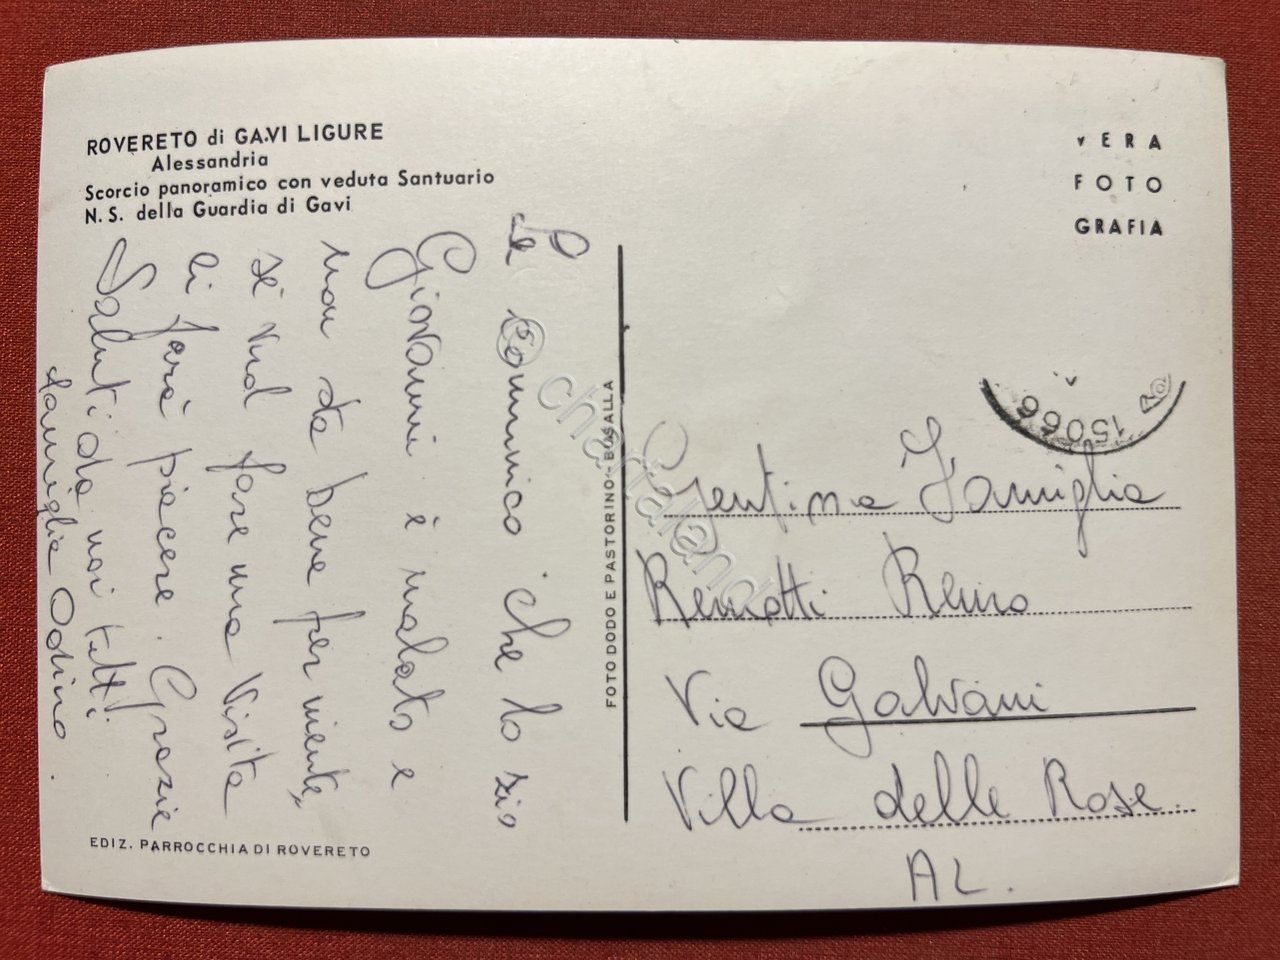 ROVERETO di GAVI LIGURE
Alessandria
Scorcio panoramico con veduta Santuario
N. S. della Guardia di Gavi
VERA
FOTO
GRAFIA
Le comunico che lo zio
Giovanni è malato e
non sta bene per niente,
se vuol fare una visita
li farà piacere. Grazie
Saluti da noi tutti
famiglia Odino.
FOTO DODO E PASTORINO - BUSALLA
15066
Gentima Famiglia
Remotti Remo
Via Galvani
Villa delle Rose.
AL.
EDIZ. PARROCCHIA DI ROVERETO
© chartaland